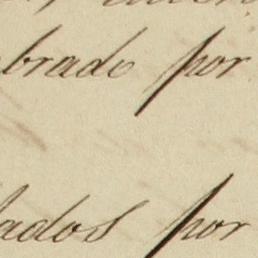 brado por
lados por